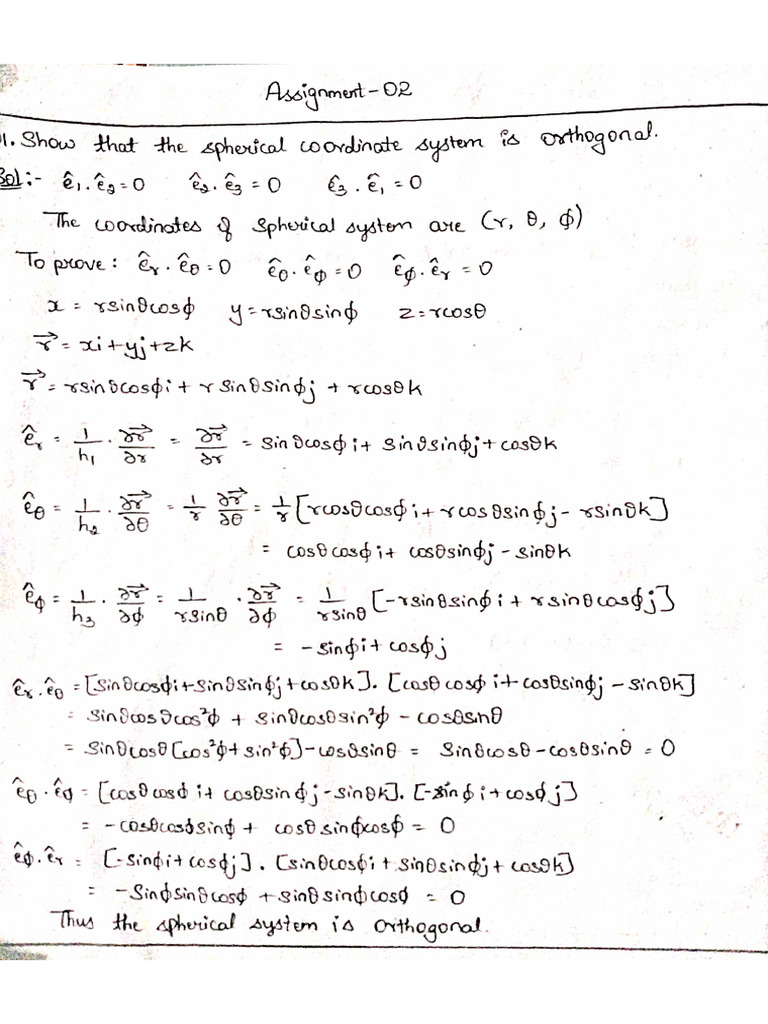 Assignment-02
01. Show that the spherical coordinate system is orthogonal.
Sol:- ê₁.ê₂=0 ê₂.ê₃=0 ê₃.ê₁=0
The coordinates of spherical system are (r, θ, ϕ)
To prove: êᵣ.ê_θ=0 ê_θ.ê_ϕ=0 ê_ϕ.êᵣ=0
x = rsinθcosϕ y=rsinθsinϕ z=rcosθ
r⃗ = xi+yj+zk
r⃗ = rsinθcosϕi + rsinθsinϕj + rcosθk
êᵣ = 1/h₁ . ∂r⃗/∂r = ∂r⃗/∂r = sinθcosϕi + sinθsinϕj + cosθk
ê_θ = 1/h₂ . ∂r⃗/∂θ = 1/r ∂r⃗/∂θ = 1/r [rcosθcosϕi + rcosθsinϕj - rsinθk]
= cosθcosϕi + cosθsinϕj - sinθk
ê_ϕ = 1/h₃ . ∂r⃗/∂ϕ = 1/rsinθ . ∂r⃗/∂ϕ = 1/rsinθ [-rsinθsinϕi + rsinθcosϕj]
= -sinϕi + cosϕj
êᵣ.ê_θ = [sinθcosϕi+sinθsinϕj+cosθk]. [cosθcosϕi+cosθsinϕj - sinθk]
= sinθcosθcos²ϕ + sinθcosθsin²ϕ - cosθsinθ
= sinθcosθ[cos²ϕ+sin²ϕ]-cosθsinθ = sinθcosθ-cosθsinθ = 0
ê_θ.ê_ϕ = [cosθcosϕi+cosθsinϕj-sinθk]. [-sinϕi+cosϕj]
= -cosθcosϕsinϕ + cosθsinϕcosϕ = 0
ê_ϕ.êᵣ = [-sinϕi+cosϕj] . [sinθcosϕi + sinθsinϕj + cosθk]
= -sinϕsinθcosϕ + sinθsinϕcosϕ = 0
Thus the spherical system is orthogonal.